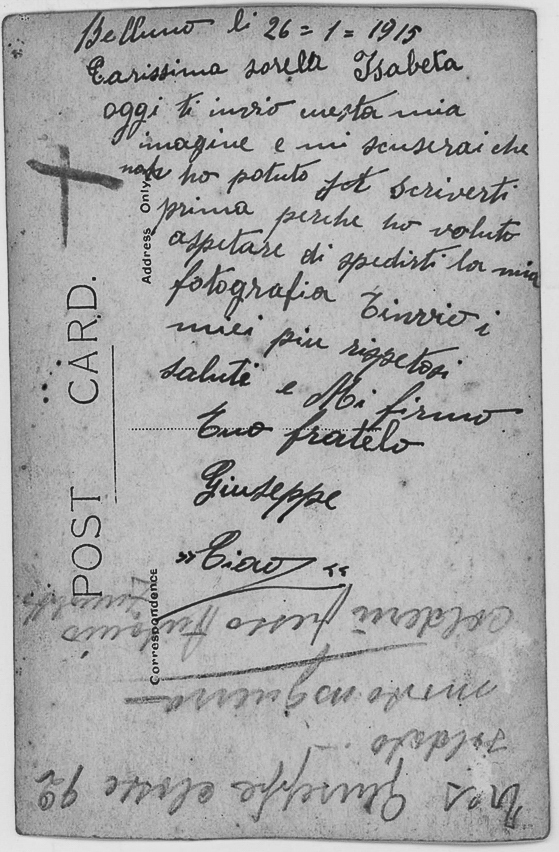 Belluno li 26=1=1915
Carissima sorella Isabeta
oggi ti invio questa mia
imagine e mi scuserai che
non ho potuto scriverti
prima perche ho voluto
aspetare di spedirti la mia
fotografia Tinvio i
miei piu rispetosi
saluti e Mi firmo
Tuo fratelo
Giuseppe
»Ciao«
POST CARD.
Address Only
Correspondence
Giuseppe classe 92
soldato
morto in guerra
presso